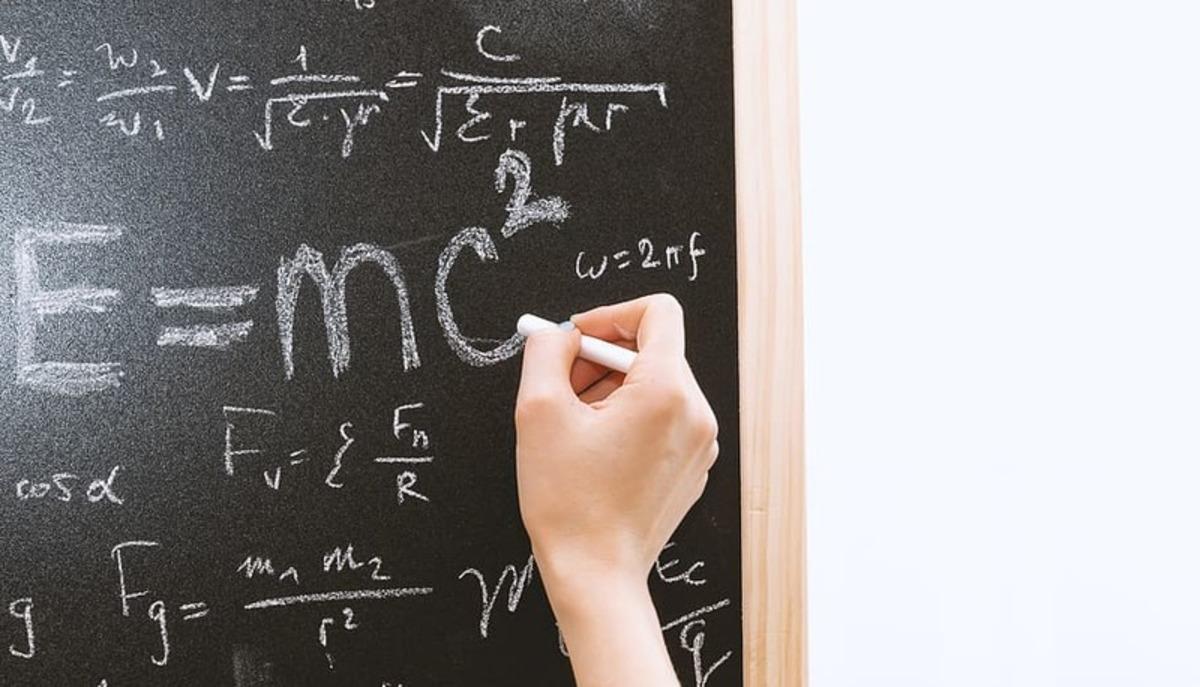 v₁/v₂ = w₂/w₁ v = 1/√(ε·μ) = c/√(εr μr)
E = mc²
ω = 2πf
Fv = ξ Fn/R
cos α
Fg = m₁ m₂/r²
g